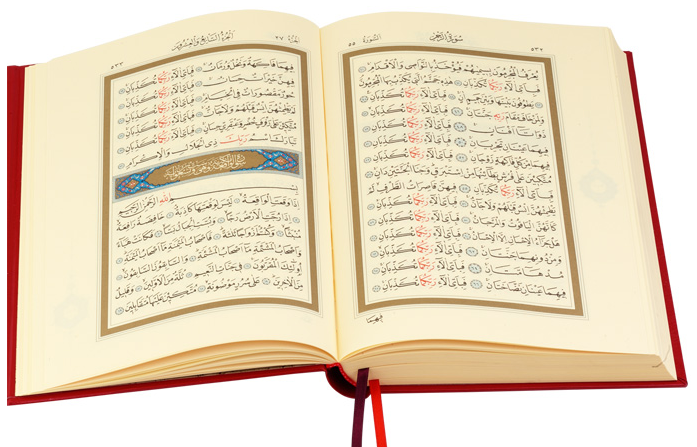 ٥٣٢ سورة الرحمن السورة ٥٥
يعرف المجرمون بسيماهم فيؤخذ بالنواصي والأقدام
فبأي آلاء ربكما تكذبان هذه جهنم التي يكذب بها المجرمون
يطوفون بينها وبين حميم آن فبأي آلاء ربكما تكذبان
ولمن خاف مقام ربه جنتان فبأي آلاء ربكما تكذبان
ذواتا أفنان فبأي آلاء ربكما تكذبان
فيهما عينان تجريان فبأي آلاء ربكما تكذبان
فيهما من كل فاكهة زوجان فبأي آلاء ربكما تكذبان
متكئين على فرش بطائنها من إستبرق وجنا الجنتين دان
فبأي آلاء ربكما تكذبان فيهن قاصرات الطرف لم
يطمثهن إنس قبلهم ولا جان فبأي آلاء ربكما تكذبان
كأنهن الياقوت والمرجان فبأي آلاء ربكما تكذبان
هل جزاء الإحسان إلا الإحسان فبأي آلاء ربكما تكذبان
ومن دونهما جنتان فبأي آلاء ربكما تكذبان
مدهامتان فبأي آلاء ربكما تكذبان
فيهما عينان نضاختان فبأي آلاء ربكما تكذبان
فيهما
الجزء ٢٧ الجزء السابع والعشرون ٥٣٣
فيهما فاكهة ونخل ورمان فبأي آلاء ربكما تكذبان
فيهن خيرات حسان فبأي آلاء ربكما تكذبان
حور مقصورات في الخيام فبأي آلاء ربكما تكذبان
لم يطمثهن إنس قبلهم ولا جان فبأي آلاء ربكما تكذبان
متكئين على رفرف خضر وعبقري حسان فبأي آلاء ربكما تكذبان
تبارك اسم ربك ذي الجلال والإكرام
سورة الواقعة مكية وهي ست وتسعون آية
بسم الله الرحمن الرحيم
إذا وقعت الواقعة ليس لوقعتها كاذبة خافضة رافعة
إذا رجت الأرض رجا وبست الجبال بسا فكانت هباء
منبثا وكنتم أزواجا ثلاثة فأصحاب الميمنة ما أصحاب الميمنة
وأصحاب المشأمة ما أصحاب المشأمة والسابقون السابقون
أولئك المقربون في جنات النعيم ثلة من الأولين وقليل
من الآخرين على سرر موضونة متكئين عليها متقابلين